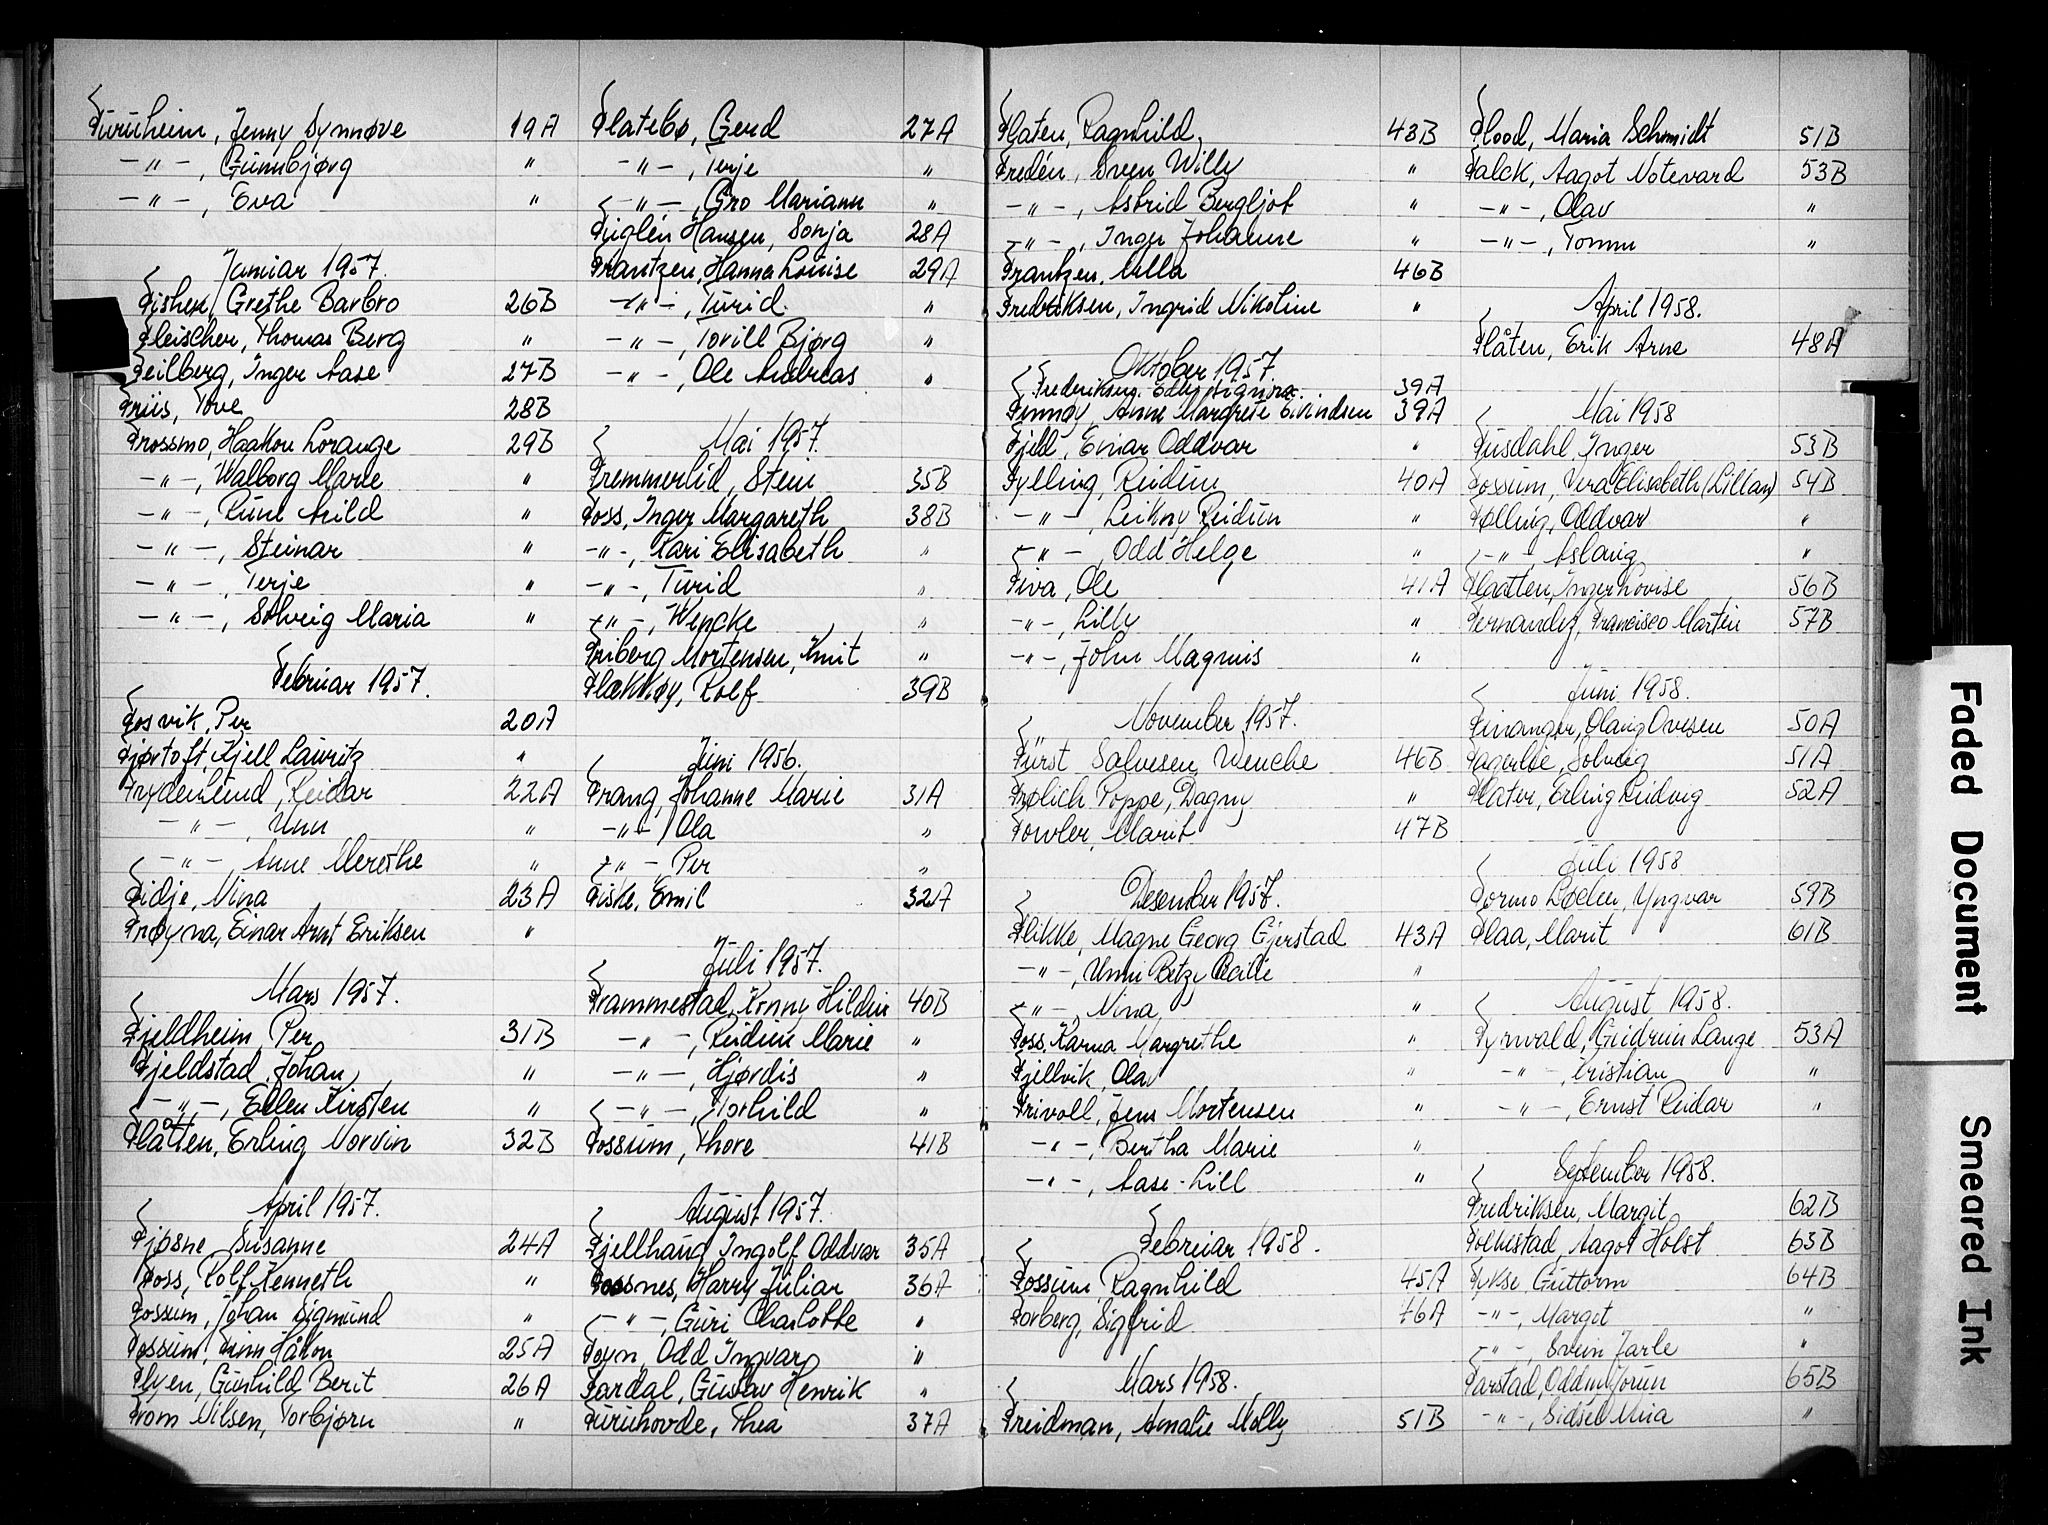 Furuheim, Jenny Synnøve 19A
-"-, Gunnbjørg "
-"-, Eva "
Januar 1957.
Fisher, Grethe Barbro 26B
Fleischer, Thomas Berg "
Feilberg, Inger Aase 27B
Friis, Tove 28B
Frossmo, Haakon Lorange 29B
-"-, Walborg Marie "
-"-, Rune Arild "
-"-, Steinar "
-"-, Terje "
-"-, Solveig Maria "
Februar 1957.
Fosvik, Per 20A
Fjørtoft, Kjell Lauritz "
Frydenlund, Reidar 22A
-"-, Unn "
-"-, Anne Merethe "
Fidje, Nina 23A
Frøyna, Einar Arnt Eriksen "
Mars 1957.
Fjeldheim, Per 31B
Fjeldstad, Johan "
-"-, Ellen Kirsten "
Flåtten, Erling Norvin 32B
April 1957.
Fjøsne, Susanne 24A
Foss, Rolf Kenneth "
Fossum, Johan Sigmund "
Fossum, Finn Håkon 25A
Flyen, Gunhild Berit 26A
From Nilsen, Torbjørn "
Flatebø, Gerd 27A
-"-, Terje "
-"-, Gro Mariann "
Fuglen Hansen, Sonja 28A
Frantzen, Hanna Louise 29A
-"-, Turid "
-"-, Torill Bjørg "
-"-, Ole Andreas "
Mai 1957.
Fremmerlid, Stein 35B
Foss, Inger Margareth 38B
-"-, Kari Elisabeth "
-"-, Turid "
-"-, Wencke "
Friberg Mortensen, Knut "
Flakkøy, Rolf 39B
Juni 1956.
Frang, Johanne Marie 31A
-"-, Ola "
-"- Per "
Fiske, Emil 32A
Juli 1957.
Frammestad, Konny Hildur 40B
-"-, Reidun Marie "
-"-, Hjørdis "
-"-, Torhild "
Fossum, Thore 41B
August 1957.
Fjellhaug Ingolf Oddvar 35A
Fossnes, Harry Julian 36A
-"-, Guri Charlotte "
Foyn, Odd Ingvar "
Fardal, Gustav Henrik "
Furuhovde, Thea 37A
Flaten, Ragnhild 43B
Fredén, Sven Willy "
-"-, Astrid Bergljot "
-"-, Inger Johanne "
Frantzen, Ulla 46B
Fredriksen, Ingrid Nikoline "
Oktober 1957
Frederiksen, Edle Signora 39A
Finnøy, Anne Margrete Eivindsen 39A
Fjeld, Einar Oddvar "
Fylling, Reidun 40A
-"-, Leikny Reidun "
-"-, Odd Helge "
Fiva, Ole 41A
-"-, Lilly "
-"-, John Magnus "
November 1957.
Fürst Salvesen, Wenche 46B
Frølich Poppe, Dagny "
Fowler, Marit 47B
Desember 1957.
Flikke, Magne Georg Gjerstad 43A
-"-, Unni Betzy "
-"-, Nina "
Foss, Karna Margrethe "
Fjellvik, Olav "
Frivoll, Jens Mortensen "
-"-, Bertha Marie "
-"-, Aase-Lill "
Februar 1958.
Fossum, Ragnhild 45A
Forberg, Sigfrid 46A
Mars 1958.
Freidman, Amalie Molly 51B
Flood, Maria Schmidt 51B
Falck, Aagot Notevard 53B
-"-, Olav "
-"-, Tommy "
April 1958.
Flåten, Erik Arne 48A
Mai 1958
Fusdahl, Inger 53B
Fossum, Vera Elisabeth (Lillan) 54B
Følling, Oddvar "
-"- Aslaug "
Flaatten, Inger Lovise 56B
Fernandez, Francisco Martin 57B
Juni 1958.
Finanger, Olaug Ovesen 50A
Fagerlie, Solveig 51A
Flater, Erling Ludvig 52A
Juli 1958
Formo Løchen, Yngvar 59B
Flaa, Marit 61B
August 1958.
Fynvald, Gudrun Lange 53A
-"-, Kristian "
-"-, Ernst Reidar "
September 1958.
Fredriksen, Margit 62B
Folkestad, Aagot Holst 63B
Fykse, Guttorm 64B
-"-, Margot "
-"-, Svein Jarle "
Farstad, Oddny Jorun 65B
-"-, Sidsel Mua "
Faded Document
Smeared Ink